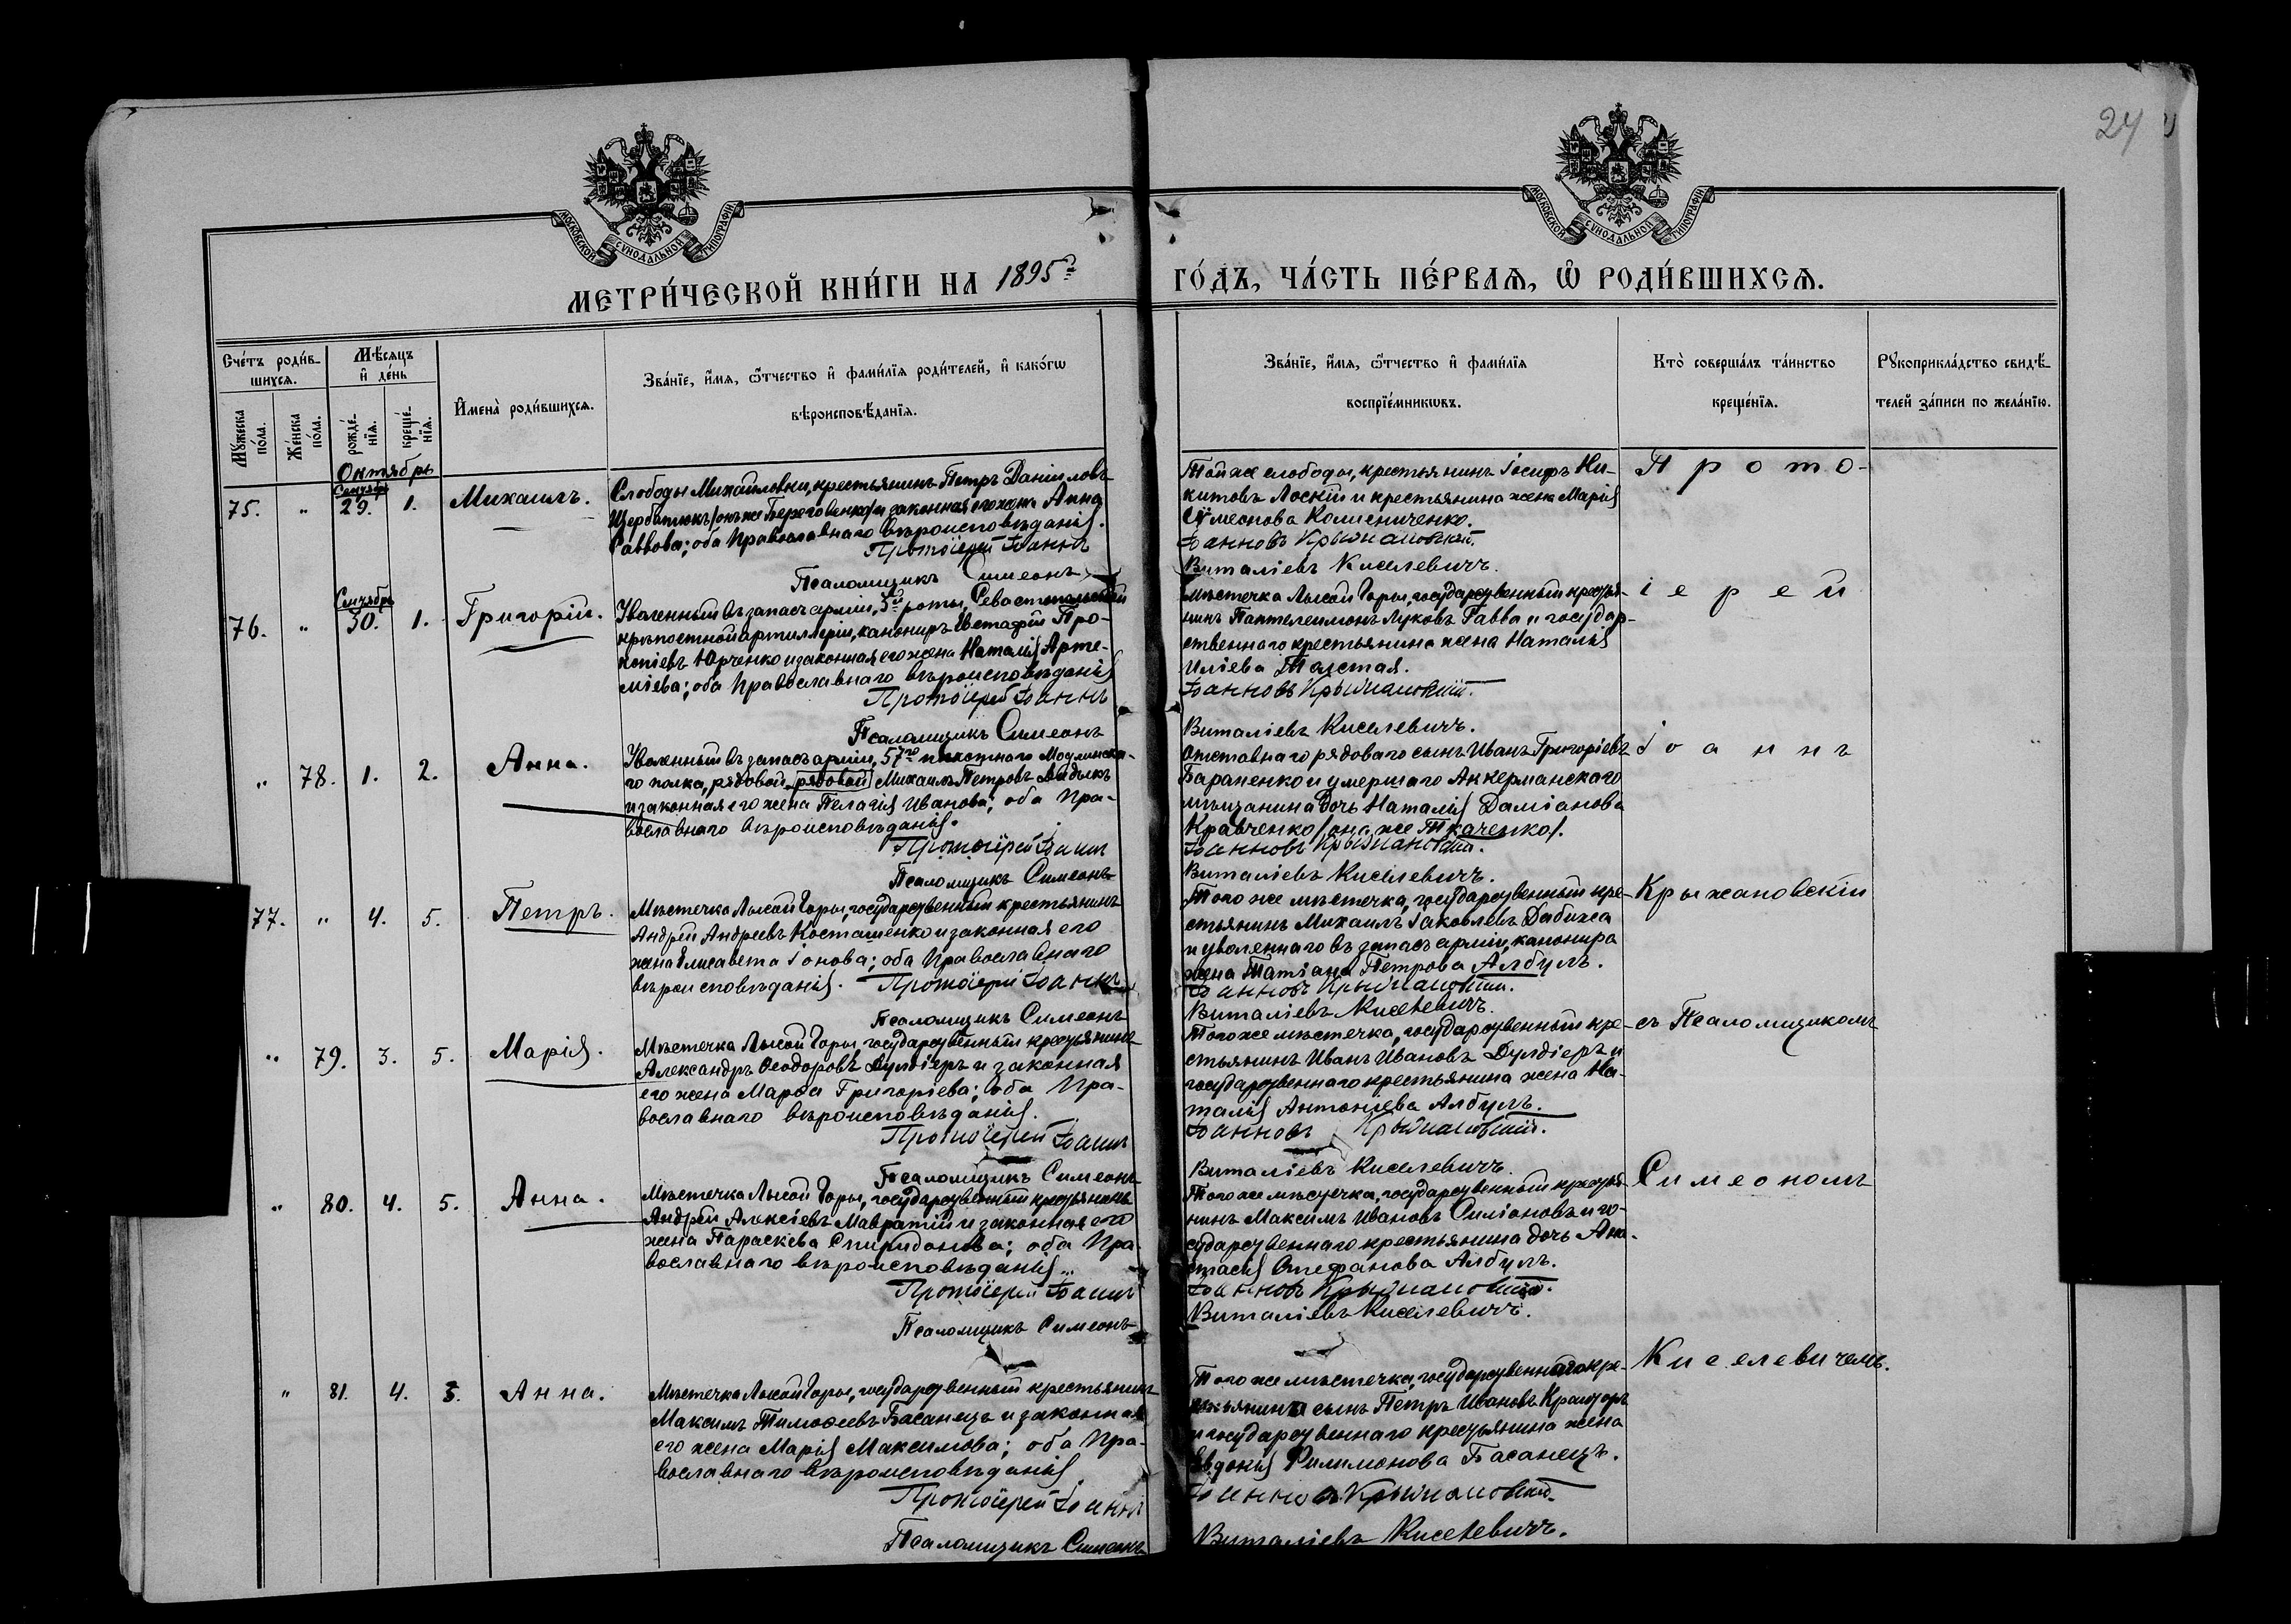 24
МОСКОВСКОЙ СУНОДАЛЬНОЙ ТИПОГРАФІИ
МОСКОВСКОЙ СУНОДАЛЬНОЙ ТИПОГРАФІИ
МЕТРИ́ЧЕСКОЙ КНИ́ГИ НА 1895й ГО́ДЪ, ЧА́СТЬ ПЕ́РВАѦ, Ѽ РОДИ́ВШИХСѦ.
Сче́тъ роди́в-
шихсѧ.
Мѣ́сѧцъ
и҆ де́нь
Мꙋ́жеска
по́ла.
Же́нска
по́ла.
рожде́-
нїѧ.
креще́-
нїѧ.
И҆мена̀ роди́вшихсѧ.
Зва́нїе, и҆́мѧ, ѻ҆́тчество и҆ фами́лїѧ роди́телей, и҆ како́гѡ
вѣроисповѣ́данїѧ.
Зва́нїе, и҆́мѧ, ѻ҆́тчество и҆ фами́лїѧ
воспрїе́мникѡвъ.
Кто̀ соверша́лъ та́инство
креще́нїѧ.
Рꙋкоприкла́дство свидѣ́-
телей за́писи по жела́нїю.
Октябрь
75. " Сентябр 29. 1. Михаилъ.
Слободы Михайловки, крестьянинъ Петръ Даніиловъ
Щербатюкъ /онъ же Береговенко/ и законная его жена Анна
Саввова; оба Православнаго вѣроисповѣданія.
Протоіерей Іоаннъ
Псаломщикъ Симеонъ
Той же слободы, крестьянинъ Іосифъ Ни-
китовъ Лоскій и крестьянина жена Марія
Сѵмеонова Колисниченко.
Іоанновъ Крыжановскій.
Виталіевъ Киселевичъ.
Прото-
76. " Сентябр 30. 1. Григорій.
Уволенный въ запасъ арміи, 3й роты, Севастопольской
крѣпостной артиллеріи, канониръ Евстафій Про-
копіевъ Юрченко и законная его жена Наталія Арте-
міева; оба Православнаго вѣроисповѣданія
Протоіерей Іоаннъ
Псаломщикъ Симеонъ
Мѣстечка Лысой Горы, государственный крестья-
нинъ Пантелеимонъ Луковъ Савва и государ-
ственнаго крестьянина жена Наталія
Иліева Толстая.
Іоанновъ Крыжановскій.
Виталіевъ Киселевичъ.
іерей
" 78. 1. 2. Анна.
Уволенный въ запасъ арміи, 57го пѣхотнаго Модлинска-
го полка, рядовой рядовой Михаилъ Петровъ
и законная его жена Пелагія Иванова; оба Пра-
вославнаго вѣроисповѣданія.
Протоіерей Іоаннъ
Псаломщикъ Симеонъ
Отставнаго рядоваго сынъ Иванъ Григоріевъ
Бараненко и умершаго Аккерманскаго
мѣщанина дочь Наталія Даміанова
Кравченко /она же Ткаченко/.
Іоанновъ Крыжановскій.
Виталіевъ Киселевичъ.
Іоаннъ
77. " 4. 5. Петръ.
Мѣстечка Лысой Горы, государственный крестьянинъ
Андрей Андреевъ Косташенко и законная его
жена Елисавета Іонова; оба Православнаго
вѣроисповѣданія. Протоіерей Іоаннъ
Псаломщикъ Симеонъ
Того же мѣстечка, государственный кре-
стьянинъ Михаилъ Іаковлевъ Дабижа
и уволеннаго въ запасъ арміи, канонира
жена Татіана Петрова Албулъ.
Іоанновъ Крыжановскій.
Виталіевъ Киселевичъ.
Крыжановскій
" 79. 3. 5. Марія.
Мѣстечка Лысой Горы, государственный крестьянинъ
Александръ Ѳеодоровъ Дулдіеръ и законная
его жена Марѳа Григоріева; оба Пра-
вославнаго вѣроисповѣданія.
Протоіерей Іоаннъ
Псаломщикъ Симеонъ
Того же мѣстечка, государственный кре-
стьянинъ Иванъ Ивановъ Дулдіеръ и
государственнаго крестьянина жена На-
талія Антоніева Албулъ.
Іоанновъ Крыжановскій.
Виталіевъ Киселевичъ.
съ Псаломщикомъ
" 80. 4. 5. Анна.
Мѣстечка Лысой Горы, государственный крестьянинъ
Андрей Алексіевъ Мавратій и законная его
жена Параскева Спиридонова; оба Пра-
вославнаго вѣроисповѣданія..
Протоіерей Іоаннъ
Псаломщикъ Симеонъ
Того же мѣстечка, государственный крестья-
нинъ Максимъ Ивановъ Силіоновъ и го-
сударственнаго крестьянина дочь Ана-
стасія Стефанова Албулъ.
Іоанновъ Крыжановскій.
Виталіевъ Киселевичъ.
Симеономъ
" 81. 4. 5. Анна.
Мѣстечка Лысой Горы, государственный крестьянинъ
Максимъ Тимоѳеевъ Басанецъ и законная
его жена Марія Максимова; оба Пра-
вославнаго вѣроисповѣданія
Протоіерей Іоаннъ
Псаломщикъ Симеонъ
Того же мѣстечка, государственнаго кре-
стьянина сынъ Петръ Ивановъ
и государственнаго крестьянина жена
Евдокія Филимонова Басанецъ.
Іоанновъ Крыжановскій.
Виталіевъ Киселевичъ.
Киселевичемъ.